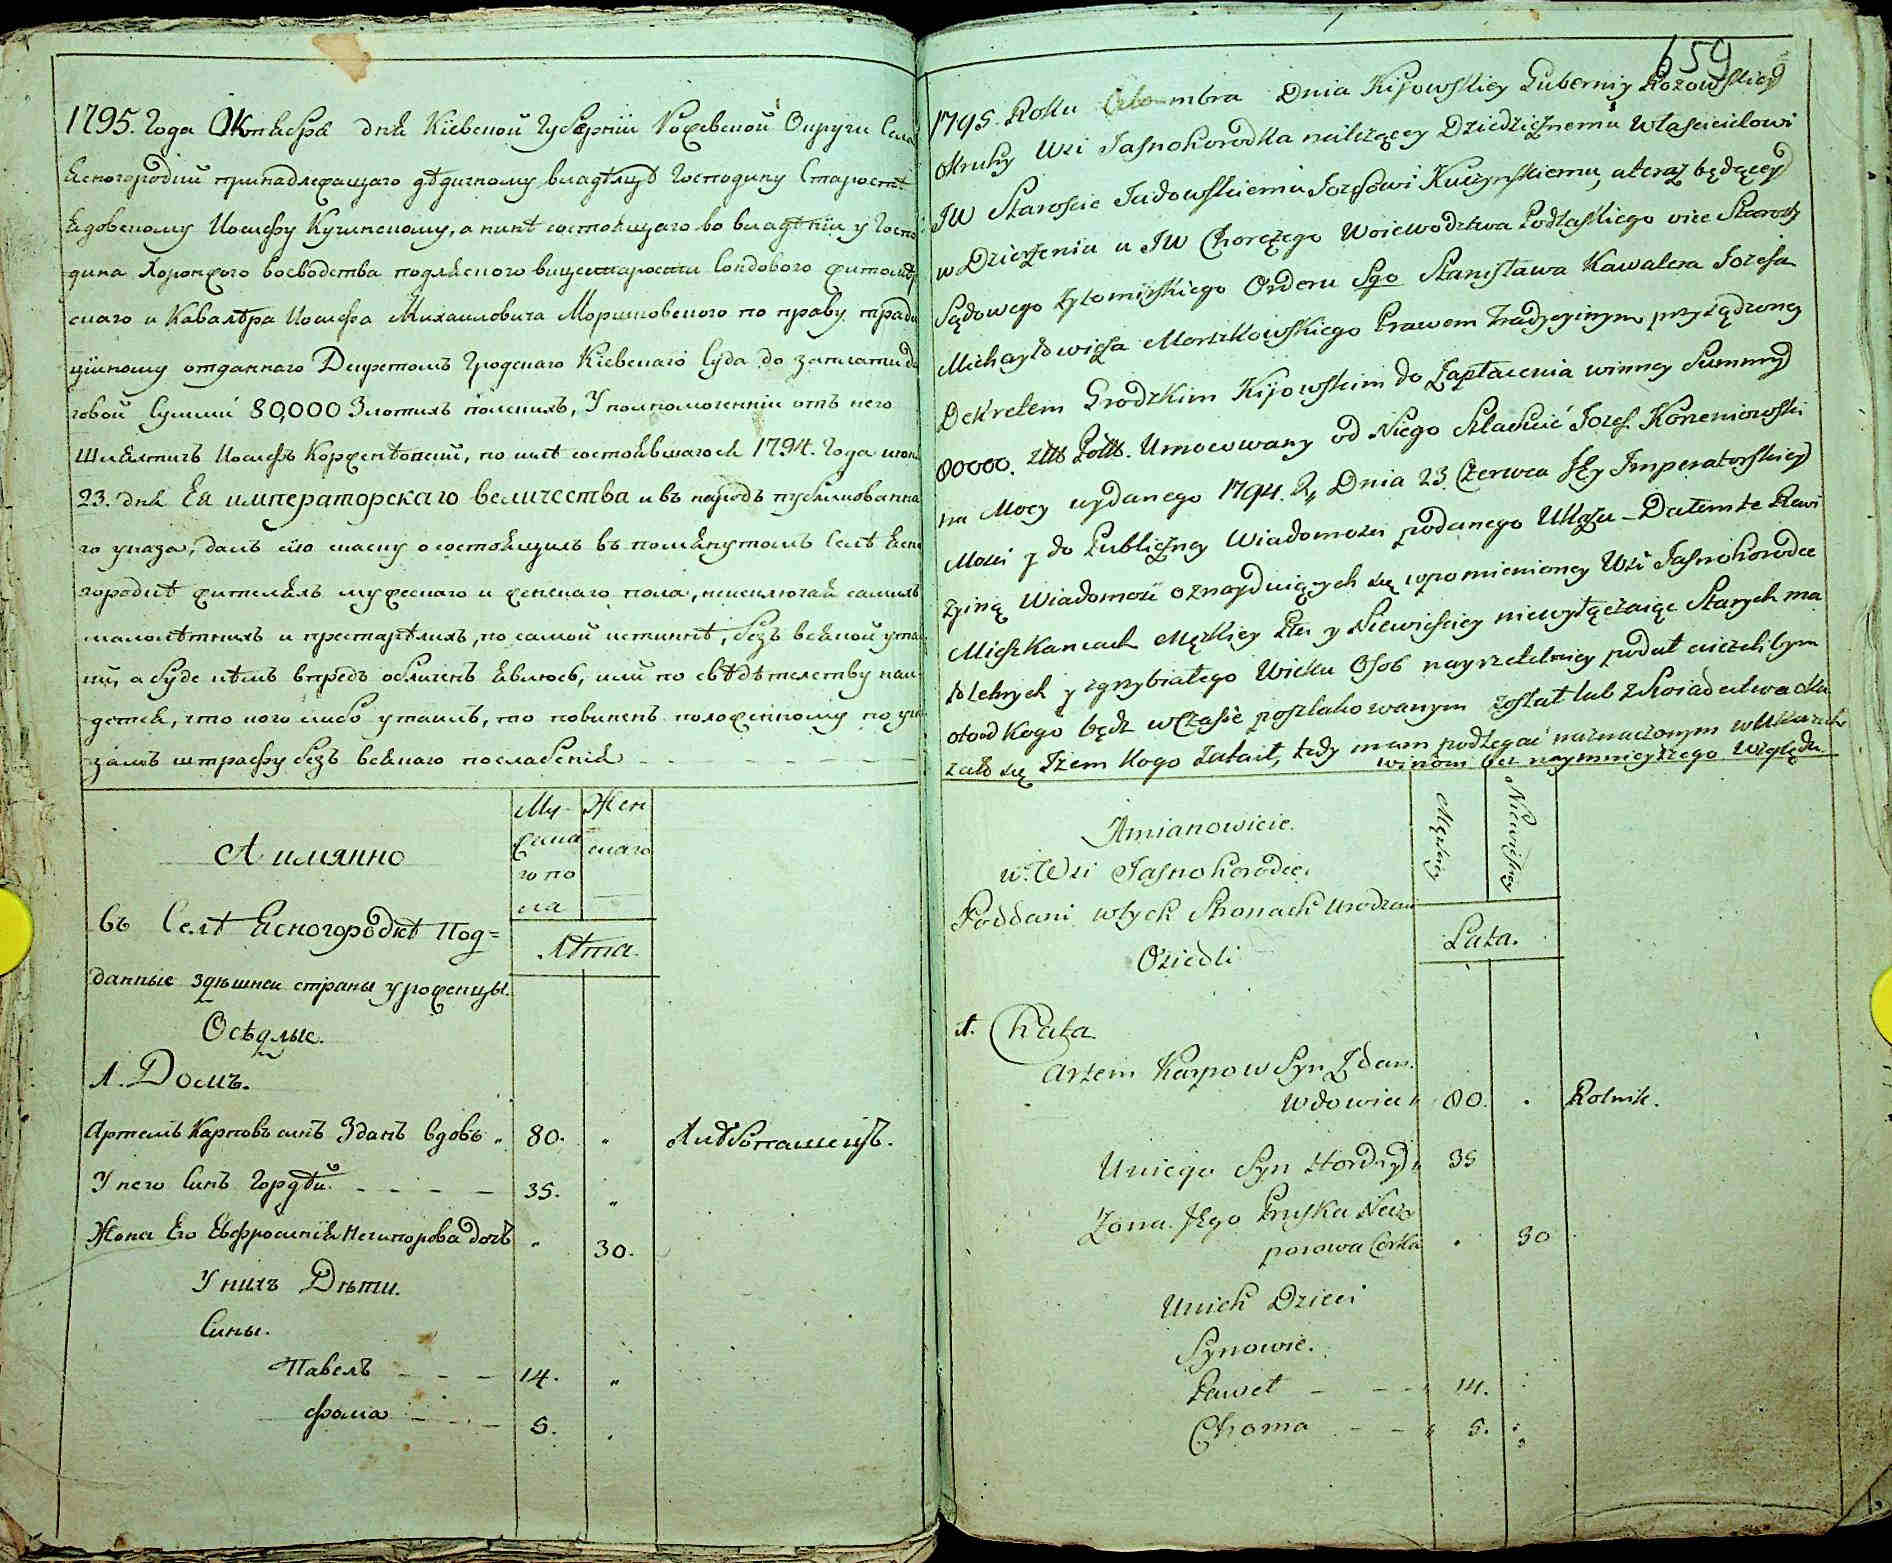 1795. года Октября дня Кіевской Губерніи Рожевской Округи Села
Ясногородки принадлежащаго дѣдичному владѣлцѣ Господину Старостѣ
Ядовскому Іосифу Кучинскому, а нинѣ состоящаго во владѣніи у Госпо
дина Хоронжого воеводства подляского вицестарости Сондового житомѣр
скаго и Кавалѣра Иосифа Михаиловича Моршковского по праву тради
ційному отданнаго Декретомъ Гродскаго Кіевскаго Суда до заплати дл
говой Сумми 80,000 Злотихъ полскихъ, Уполномоченній отъ него
Шляхтичъ Иосифъ Корженѣовскій, по силѣ состоявшагося 1794. года июня
23. дня Ея императорскаго величества и въ народъ публикованна
го указа, далъ сію скаску о состоящихъ въ помянутомъ Селѣ Ясно
городкѣ жителяхъ мужескаго и женскаго пола, неисключая самихъ
малолѣтнихъ и престарѣлихъ, по самой истиннѣ, безъ всякой утай
ки, а буде кѣмъ впредъ обличенъ явлюсь, или по свѣдѣтелству най
дется, что кого либо утаилъ, то повиненъ положенному по ука
замъ штрафу безъ всякаго послабленія
А имянно
Му-
жска
го по
ла
Жен
скаго
въ Селѣ Ясногородкѣ Под=
Лѣта.
данные здѣшней страны уроженцы.
Осѣдлые.
1. Домъ.
Артемъ Карповъ синъ Зданъ вдовъ 80. „ Хлѣбопашецъ.
У него Синъ Гордѣй. 35. „
Жона Его Евфросинія Нечипорова дочъ „ 30.
У нихъ Дѣти.
Сины.
Павелъ 14. „
Фома 5.
659
1795. Roku Oktombra Dnia Kijowskiey Gubernii Rożowskiey
Okruhy Wsi Jasnohorodka należącey Dziedzicznemu Właścicielowi
JW Staroście Jadowskiemu Jozefowi Kuczynskiemu, a teraz będącey
w Dzierżeniu u JW Chorążego Woiewodztwa Podlaskiego vice Starosty
Sądowego Żytomirskiego Orderu Sgo Stanisława Kawalera Jozefa
Michayłowicza Morzkowskiego Prawem Tradycyinym przysądzoney
Dekretem Grodzkim Kijowskim do Zapłacenia winney Summy
80000. Umocowany od Niego Szlachcic Jozef Korzeniowski
na Mocy wydanego 1794. R. Dnia 23 Czerwca Jey Imperatorskiey
Mości y do Publiczney Wiadomości podanego Ukazu Dałem te Rewi
zyiną Wiadomość o znayduiących się wpomienioney Wsi Jasnohorodce
Mieszkancach Męzkiey Płci y Niewieściey niewyłączaiąc Starych ma
łoletnych y zgrzybiałego Wieku Osob nayrzetelniey podał ieżeli bym
od Kogo bądz wczasie poszlakowanym został lub z Swiadectwa oka
zało się Iżem Kogo Zataił, tedy mam podlegać naznaczonym w Ukazach
winom bez naymnieyszego względu.
Amianowicie.
w Wsi Jasnohorodce.
Męskiey
Niewieściey
Poddani w tych Stronach Urodzeni
Lata.
Osiedli
1. Chata
Artem Karpow Syn Zdan.
Wdowiec 80. Rolnik.
Uniego Syn Hordiy 35
Zona Jego Pruska Neczy
porowa Corka 30
Unich Dzieci
Synowie.
Paweł 14.
Choma 5.